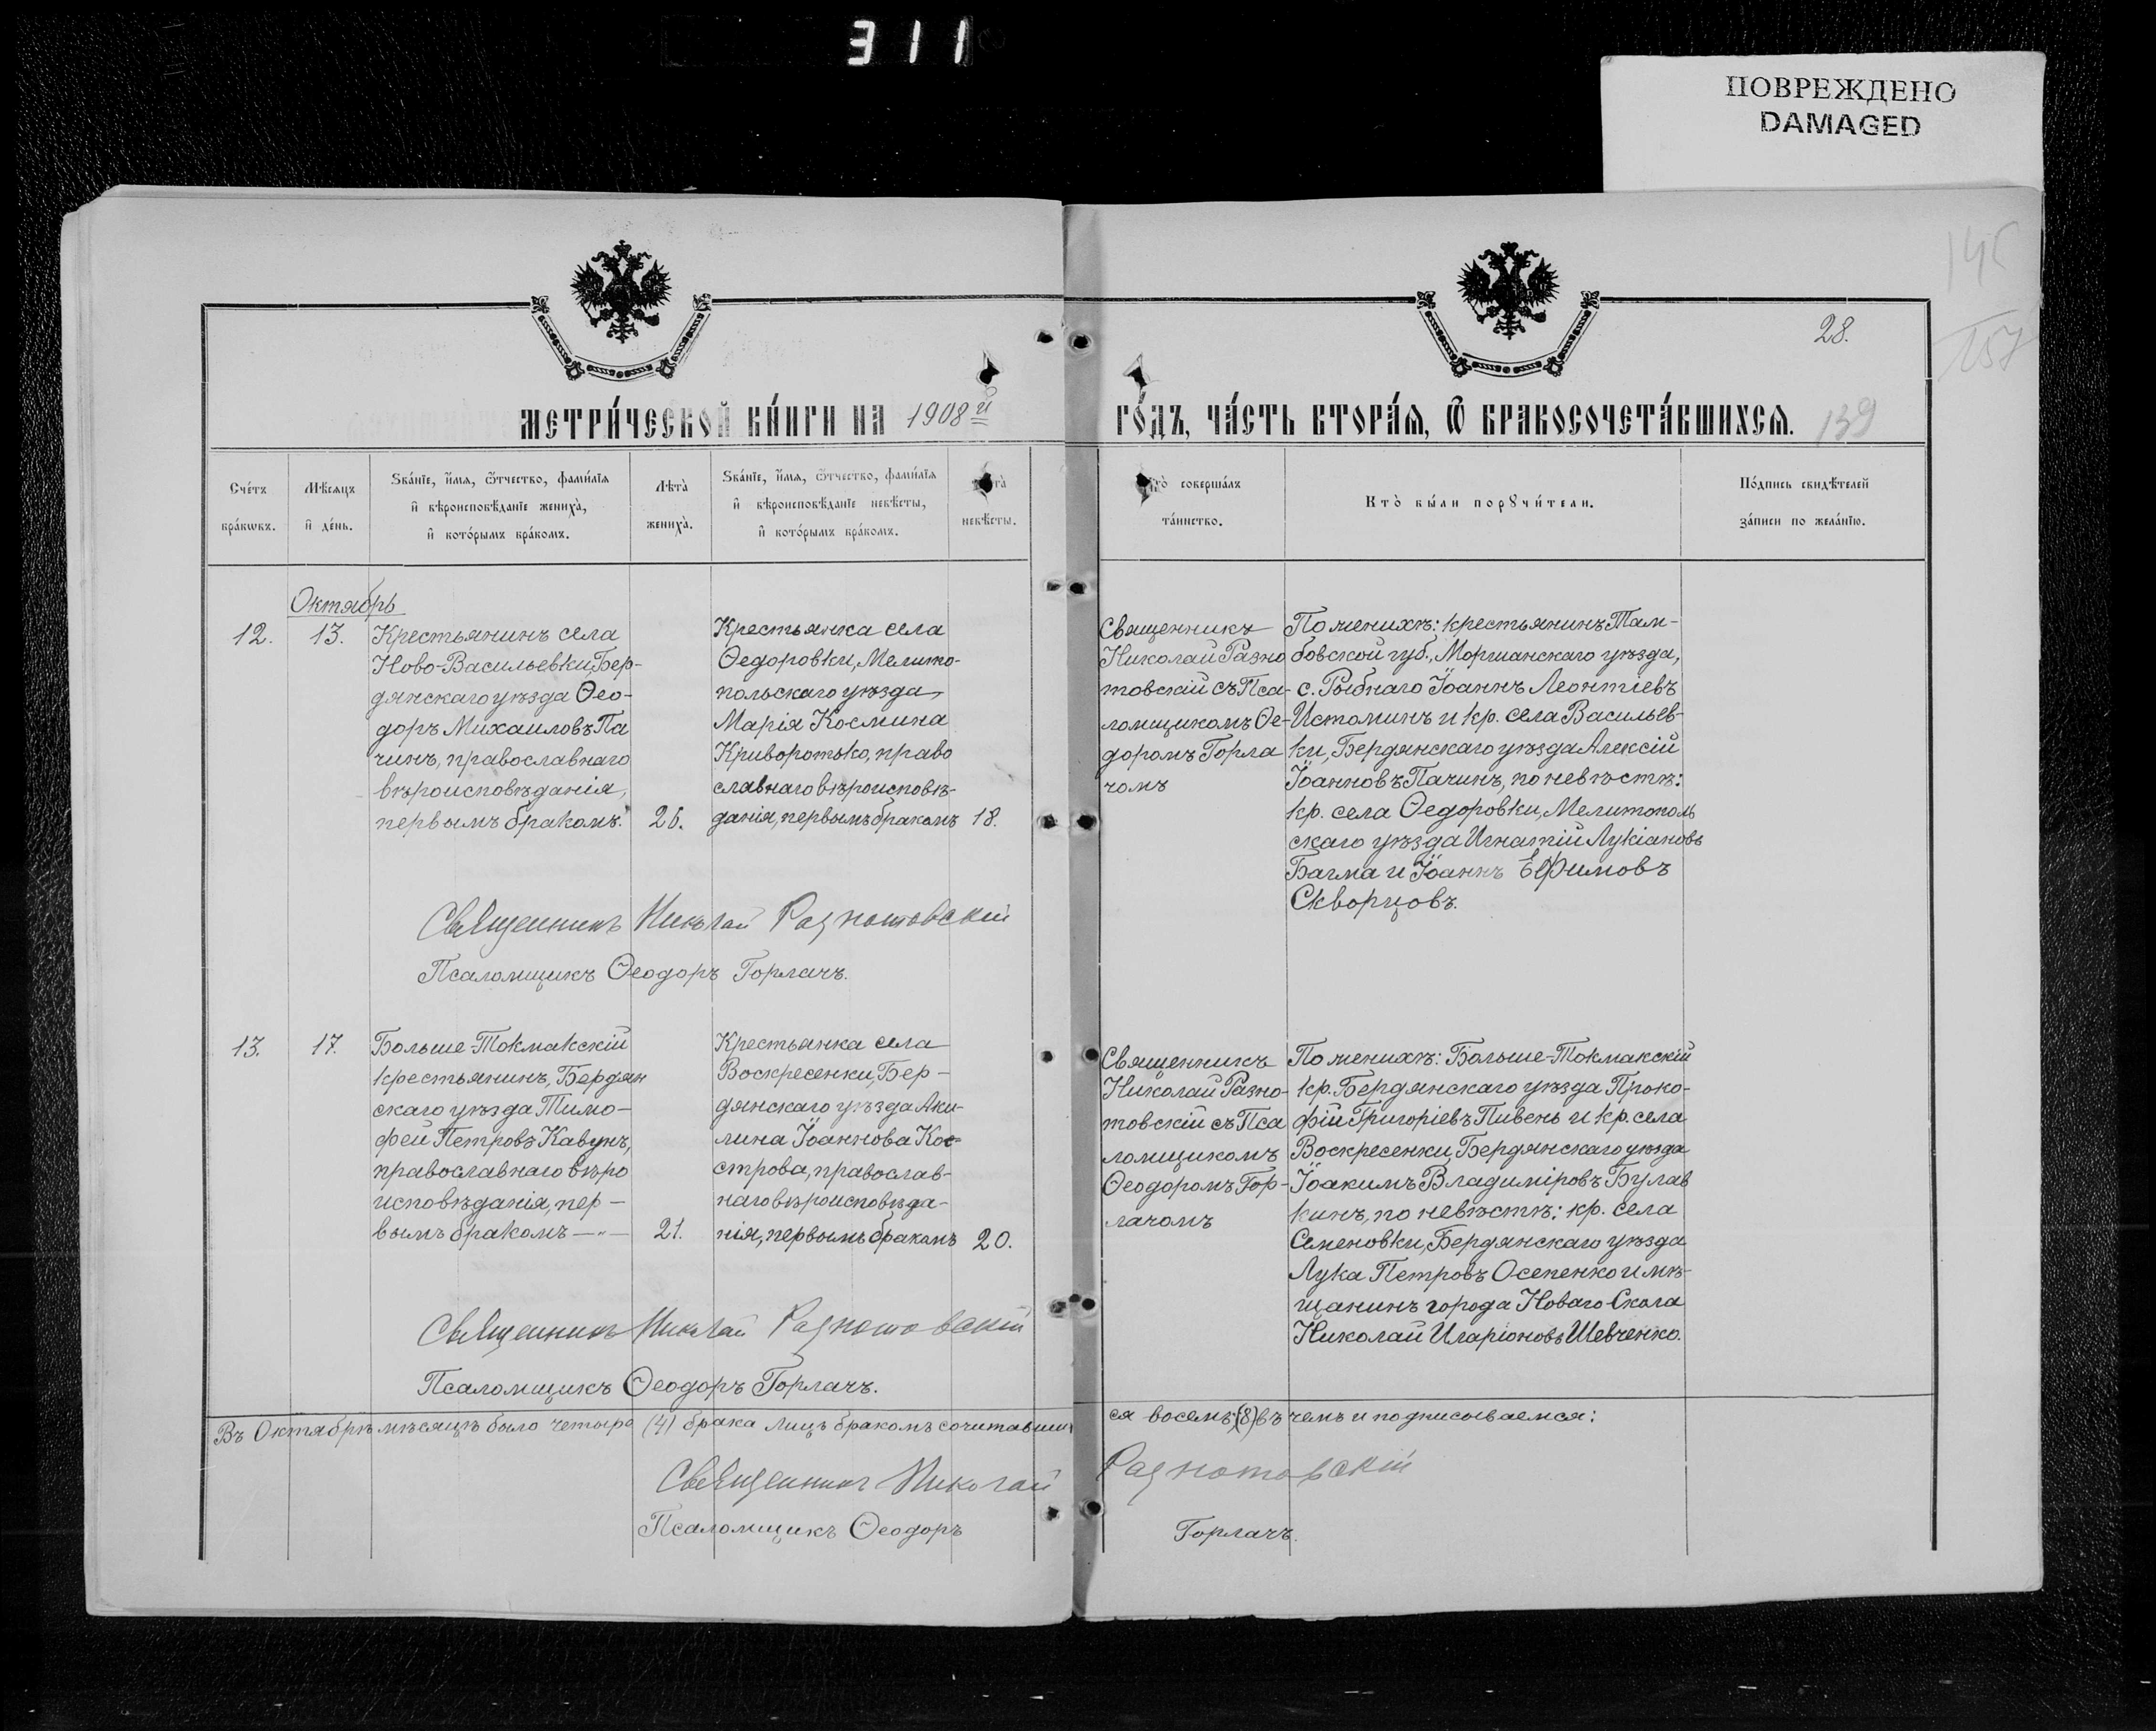 311
ПОВРЕЖДЕНО
DAMAGED
28.
157
139
МЕТРИ́ЧЕСКОЙ КНИ́ГИ НА 1908й
ГО́ДЪ, ЧА́СТЬ ВТОРА́Я, Ѿ БРАКОСОЧЕТА́ВШИХСЯ.
Сче́тъ
бра́кѡвъ.
Мѣ́сяцъ
и҆ де́нь.
Ѕва́нїе, и҆́мя, ѻ҆́тчество, фами́лїя
и҆ вѣроисповѣ́данїе жениха̀,
и҆ кото́рымъ бра́комъ.
Лѣта̀
жениха̀.
Ѕва́нїе, и҆́мя, ѻ҆́тчество, фами́лїя
и҆ вѣроисповѣ́данїе невѣ́сты,
и҆ кото́рымъ бра́комъ.
невѣ́сты.
соверша́лъ
та́инство.
Кто̀ бы́ли порꙋчи́тели.
По́дпись свидѣ́телей
за́писи по жела́нїю.
Октябрь
12.
13.
Крестьянинъ села
Ново-Васильевки, Бер-
дянскаго уѣзда Ѳео-
доръ Михаиловъ Па
чинъ, православнаго
вѣроисповѣданія,
первымъ бракомъ.
26.
Крестьянка села
Ѳедоровки, Мелито-
польскаго уѣзда,
Марія Космина
Криворотько, право
славнаго вѣроисповѣ-
данія, первымъ бракомъ
18.
Священникъ
Николай Разно
товскій съ Пса-
ломщикомъ Ѳе-
доромъ Горла
чомъ
По женихѣ: крестьянинъ Там-
бовской губ., Моршанскаго уѣзда,
с. Рыбнаго Іоаннъ Леонтіевъ
Истоминъ и кр. села Васильев-
ки, Бердянскаго уѣзда Алексій
Іоанновъ Пачинъ, по невѣстѣ:
кр. села Ѳедоровки, Мелитополь
скаго уѣзда Игнатій Лукіановъ
Багма и Іоаннъ Ефимовъ
Скворцовъ.
Священникъ Николай Разнотовскій
Псаломщикъ Ѳеодоръ Горлачъ.
13.
17.
Больше-Токмакскій
крестьянинъ, Бердян
скаго уѣзда Тимо-
фей Петровъ Кавунъ,
православнаго вѣро
исповѣданія, пер-
вымъ бракомъ —"—
21.
Крестьянка села
Воскресенки, Бер-
дянскаго уѣзда Аки-
лина Іоаннова Кос-
строва, православ-
наго вѣроисповѣда-
нія, первымъ бракомъ
20.
Священникъ
Николай Разно-
товскій съ Пса
ломщикомъ
Ѳеодоромъ Гор-
лачомъ
По женихѣ: Больше-Токмакскій
кр. Бердянскаго уѣзда Проко-
фій Григоріевъ Пивень и кр. села
Воскресенки, Бердянскаго уѣзда
Іоакимъ Владиміровъ Булав
кинъ, по невѣстѣ: кр. села
Семеновки, Бердянскаго уѣзда
Лука Петровъ Осепенко и мѣ-
щанинъ города Новаго-Скола
Николай Иларіоновъ Шевченко.
Священникъ Николай Разнотовскій
Псаломщикъ Ѳеодоръ Горлачъ.
Въ Октябрѣ мѣсяцѣ было четыре (4) брака лицъ бракомъ сочетавших ся восемь (8) въ чемъ и подписываемся:
Священникъ Николай Разнотовскій
Псаломщикъ Ѳеодоръ Горлачъ.